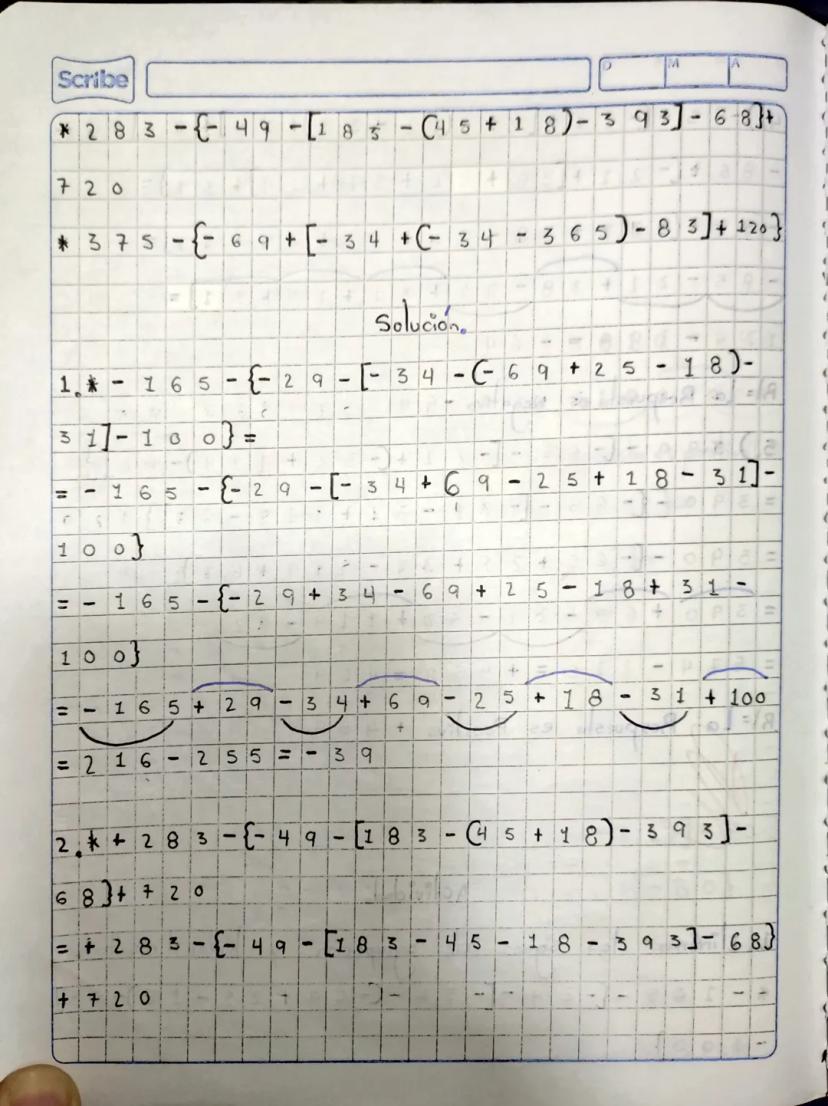 Scribe
D M A
* 283 -{- 49 -[183 - (45 + 18) - 393] - 68}+
720
* 375 -{- 69 + [- 34 + (- 34 - 365) - 83] + 120}
Solución.
1.* - 165 -{- 29 -[- 34 - (- 69 + 25 - 18) -
31] - 100} =
= - 165 -{- 29 -[- 34 + 69 - 25 + 18 - 31] -
100}
= - 165 -{- 29 + 34 - 69 + 25 - 18 + 31 -
100}
= - 165 + 29 - 34 + 69 - 25 + 18 - 31 + 100
= 216 - 255 = - 39
2.* + 283 -{- 49 -[183 - (45 + 18) - 393] -
68}+ 720
= + 283 -{- 49 -[183 - 45 - 18 - 393] - 68}
+ 720